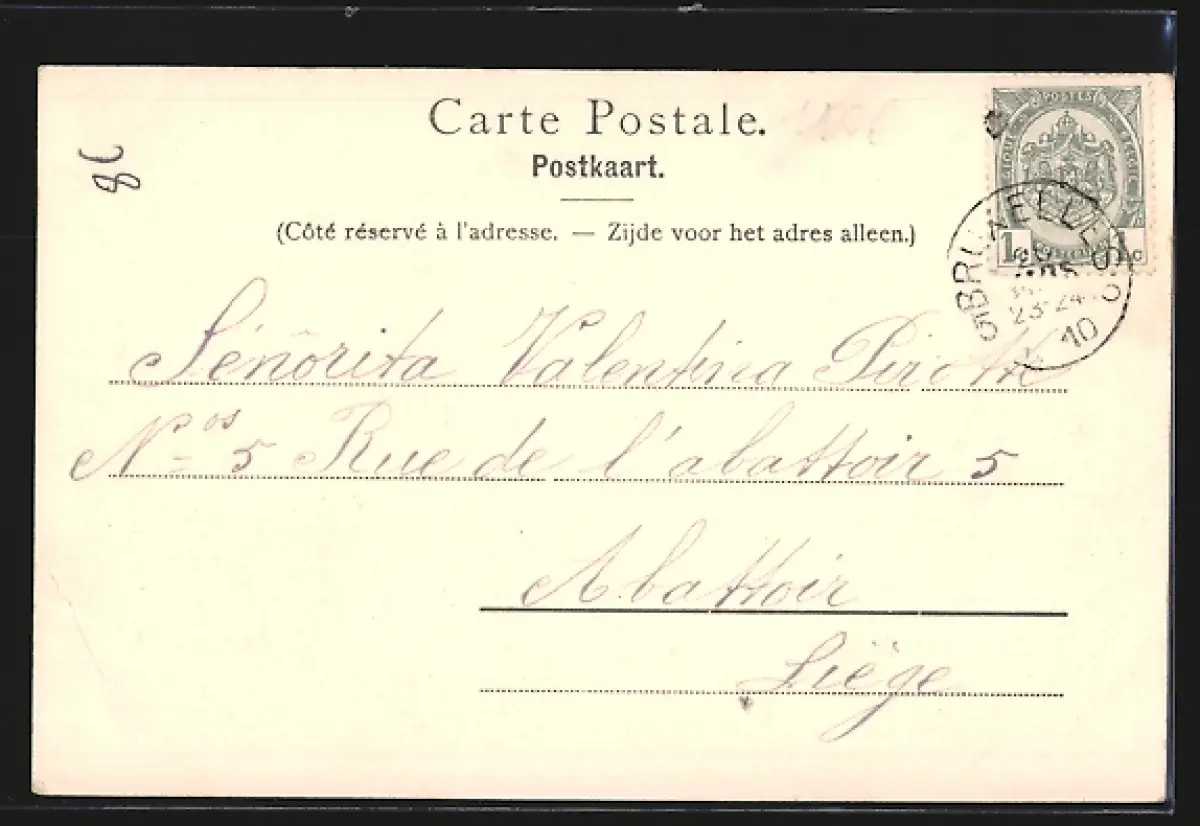 Carte Postale.
Postkaart.
(Côté réservé à l'adresse. — Zijde voor het adres alleen.)
POSTES
1 C
BRUXELLES
23-24
10
Señorita Valentina Pirotte
Nos 5 Rue de l'abattoir 5
Abattoir
Liège